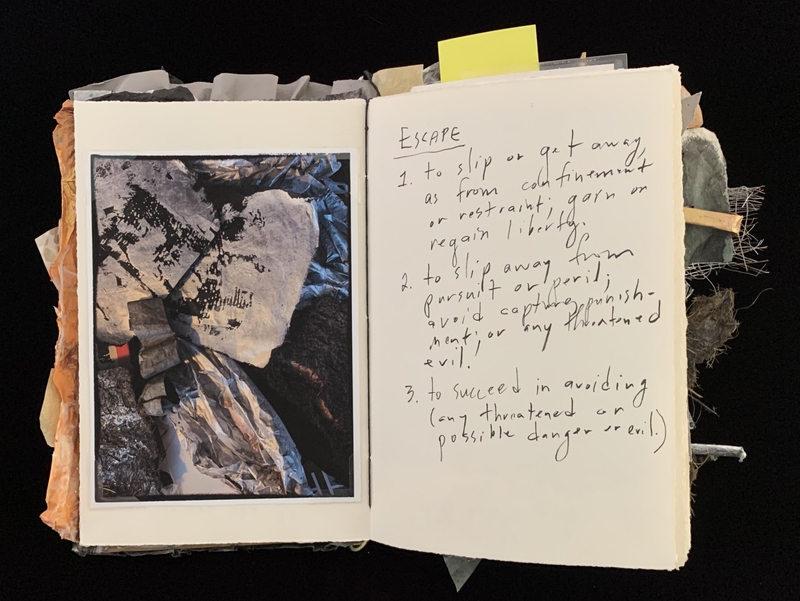 ESCAPE
1. to slip or get away,
as from confinement
or restraint; gain or
regain liberty.
2. to slip away from
pursuit or peril;
avoid capture, punish-
ment, or any threatened
evil.
3. to succeed in avoiding
(any threatened or
possible danger or evil.)